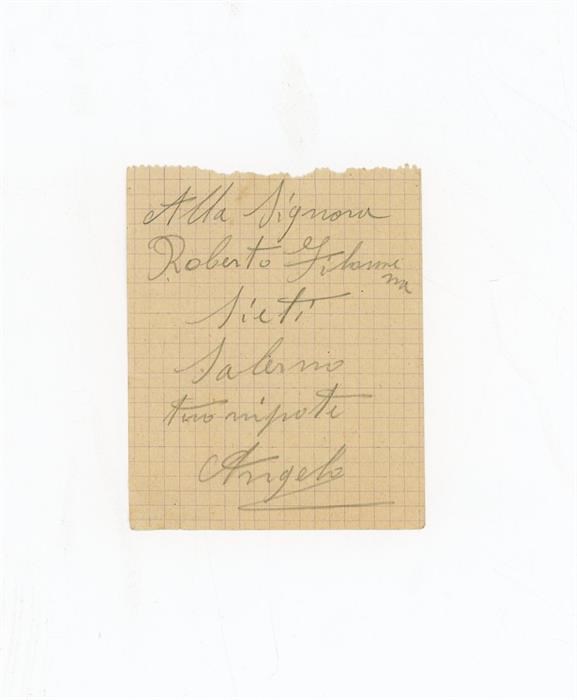 Alla Signora
Roberto Filome
na
Sieti
Salerno
tuo nipote
Angelo